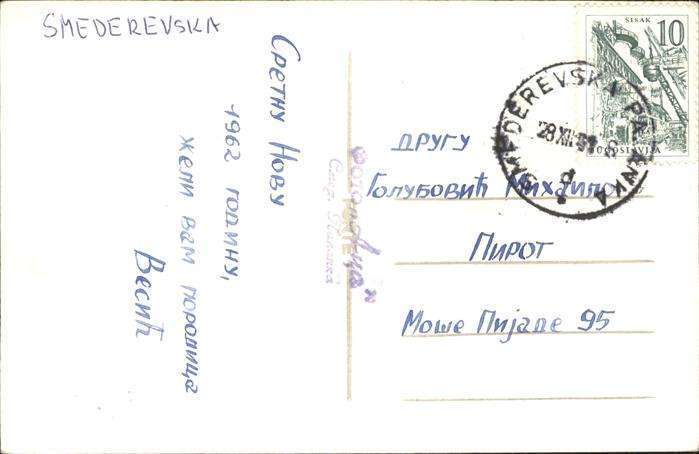 SMEDEREVSKA
Сретну Нову
1962 годину,
жели вам породица
Весић
SISAK
10
JUGOSLAVIJA
SMEDEREVSKA PALANKA
28 XII 61
другу
Голубовић Михаило
Пирот
Моше Пијаде 95